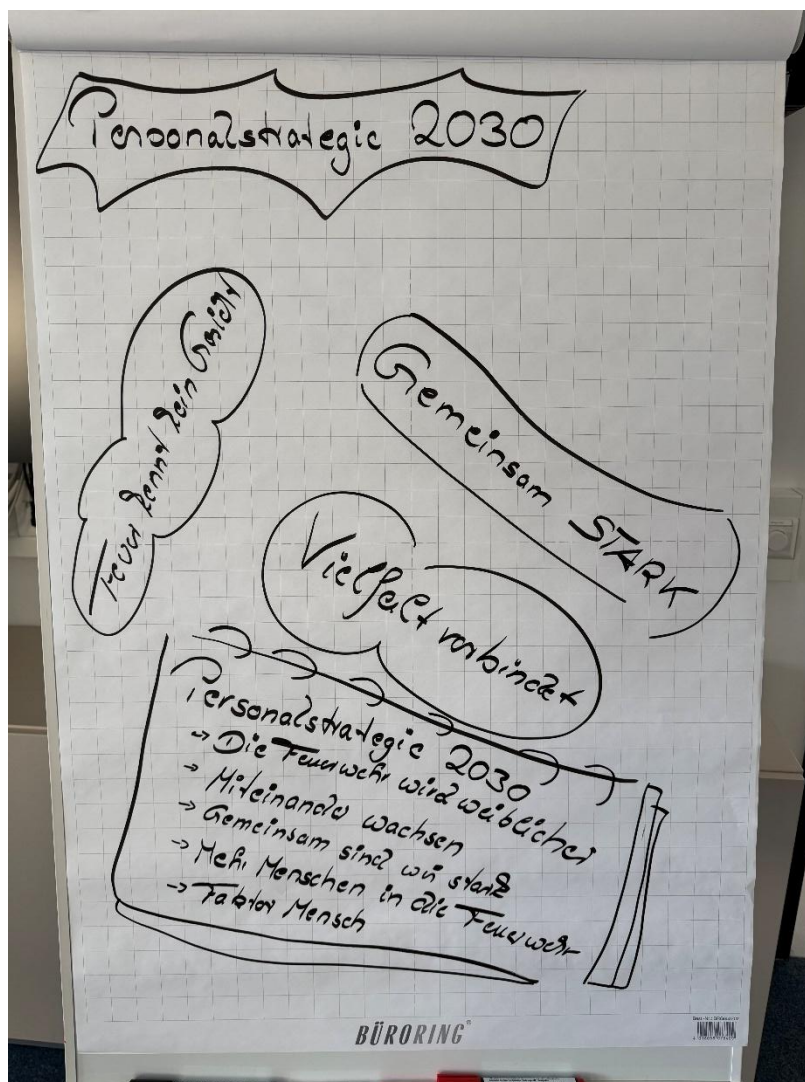 Personalstrategie 2030
Feuer kennt kein Gesicht
Gemeinsam STARK
Vielfalt verbindet
Personalstrategie 2030
→ Die Feuerwehr wird weiblicher
→ Miteinander wachsen
→ Gemeinsam sind wir stark
→ Mehr Menschen in die Feuerwehr
→ Faktor Mensch
BÜRORING®